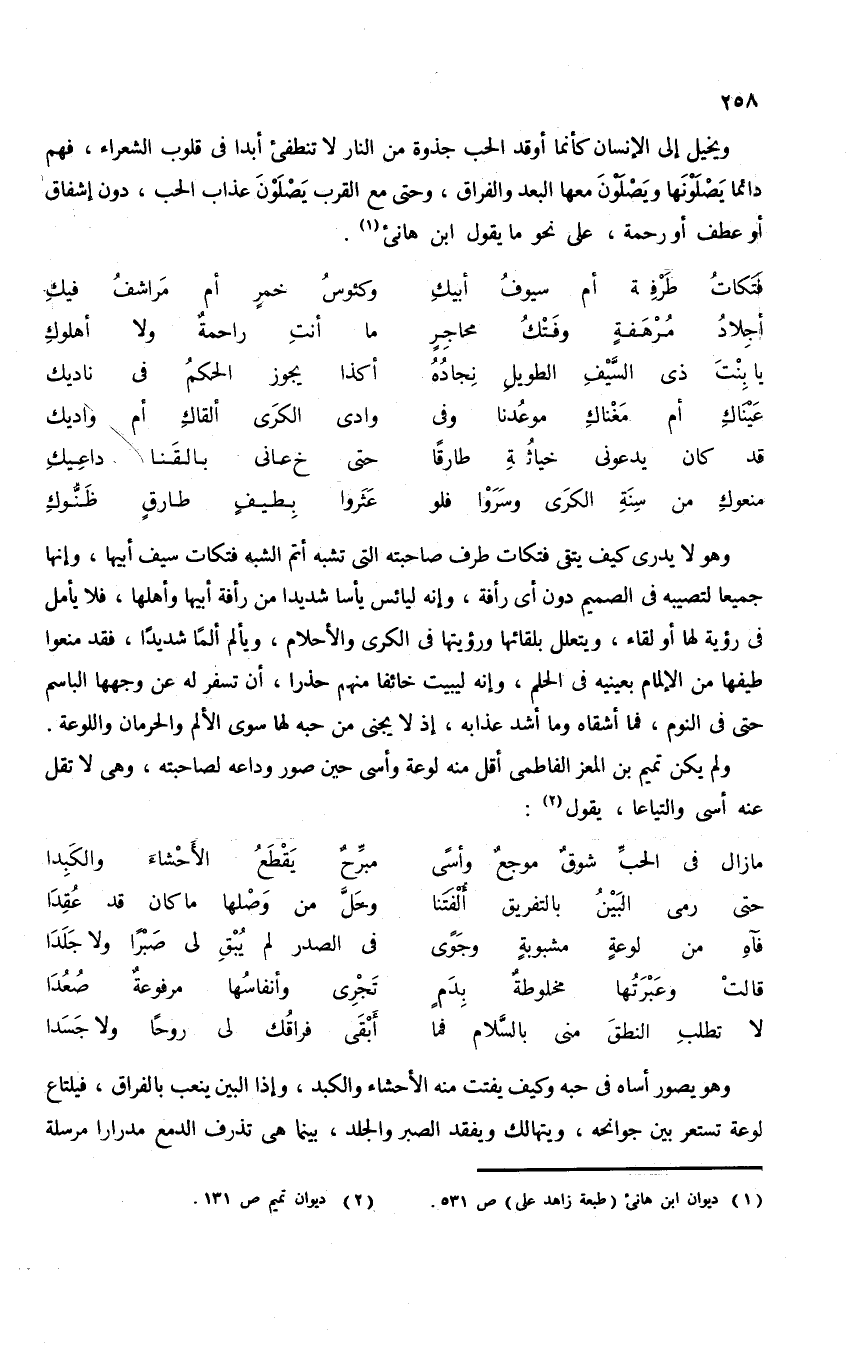 ٢٥٨
ويخيل إلى الإنسان كأنما أوقد الحب جذوة من النار لا تنطفئ أبدا فى قلوب الشعراء ، فهم
دائما يَصْلَوْنَها ويَصْلَوْنَ معها البعد والفراق ، وحتى مع القرب يَصْلَوْنَ عذاب الحب ، دون إشفاق
أو عطف أو رحمة ، على نحو ما يقول ابن هانئ(١) .
فَتَكاتُ طَرْفِكِ أم سيوفُ أبيكِ وكئوسُ خمرٍ أم مَراشفُ فيكِ
أجلادُ مُرْهَفةٍ وفَتْكُ محاجرٍ ما أنتِ راحمةٌ ولا أهلوكِ
يا بِنْتَ ذى السَّيْفِ الطويلِ نِجادُهُ أكذا يجوز الحكمُ فى ناديك
عَيْنَاكِ أم مَغْناكِ موعُدنا وفى وادى الكرَى ألقاكِ أم واديك
قد كان يدعونى خيالُكِ طارقًا حتى دعانى بالقَنا داعيكِ
منعوكِ من سِنَةِ الكرَى وسَرَوْا فلو عَثَروا بِطيفٍ طارقٍ ظَنُّوكِ
وهو لا يدرى كيف يتقى فتكات طرف صاحبته التى تشبه أتم الشبه فتكات سيف أبيها ، وإنها
جميعا لتصيبه فى الصميم دون أى رأفة ، وإنه ليائس يأسا شديدا من رأفة أبيها وأهلها ، فلا يأمل
فى رؤية لها أو لقاء ، ويتعلل بلقائها ورؤيتها فى الكرى والأحلام ، ويألم ألمًا شديدًا ، فقد منعوا
طيفها من الإلمام بعينيه فى الحلم ، وإنه ليبيت خائفا منهم حذرا ، أن تسفر له عن وجهها الباسم
حتى فى النوم ، فما أشقاه وما أشد عذابه ، إذ لا يجنى من حبه لها سوى الألم والحرمان واللوعة .
ولم يكن تميم بن المعز الفاطمى أقل منه لوعة وأسى حين صور وداعه لصاحبته ، وهى لا تقل
عنه أسى والتياعا ، يقول(٢) :
مازال فى الحبِّ شوقٌ موجعٌ وأسًى مبرِّحٌ يَقْطَعُ الأَحْشاءَ والكَبِدا
حتى رمى البَيْنُ بالتفريق أُلْفَتَنا وحَلَّ من وَصْلها ما كان قد عُقِدَا
فآهِ من لوعةٍ مشبوبةٍ وجَوًى فى الصدر لم يُبْقِ لى صَبْرًا ولا جَلَدَا
قالتْ وعَبْرَتُها مخلوطةٌ بِدَمٍ تَجْرِى وأنفاسُها مرفوعةٌ صُعُدَا
لا تطلبِ النطقَ منى بالسَّلام فما أَبْقَى فراقُك لى روحًا ولا جَسَدا
وهو يصور أساه فى حبه وكيف يفتت منه الأحشاء والكبد ، وإذا البين ينعب بالفراق ، فيلتاع
لوعة تستعر بين جوانحه ، ويتهالك ويفقد الصبر والجلد ، بينما هى تذرف الدمع مدرارا مرسلة
(١) ديوان ابن هانئ (طبعة زاهد على) ص ٥٣١. (٢) ديوان تميم ص ١٣١ .